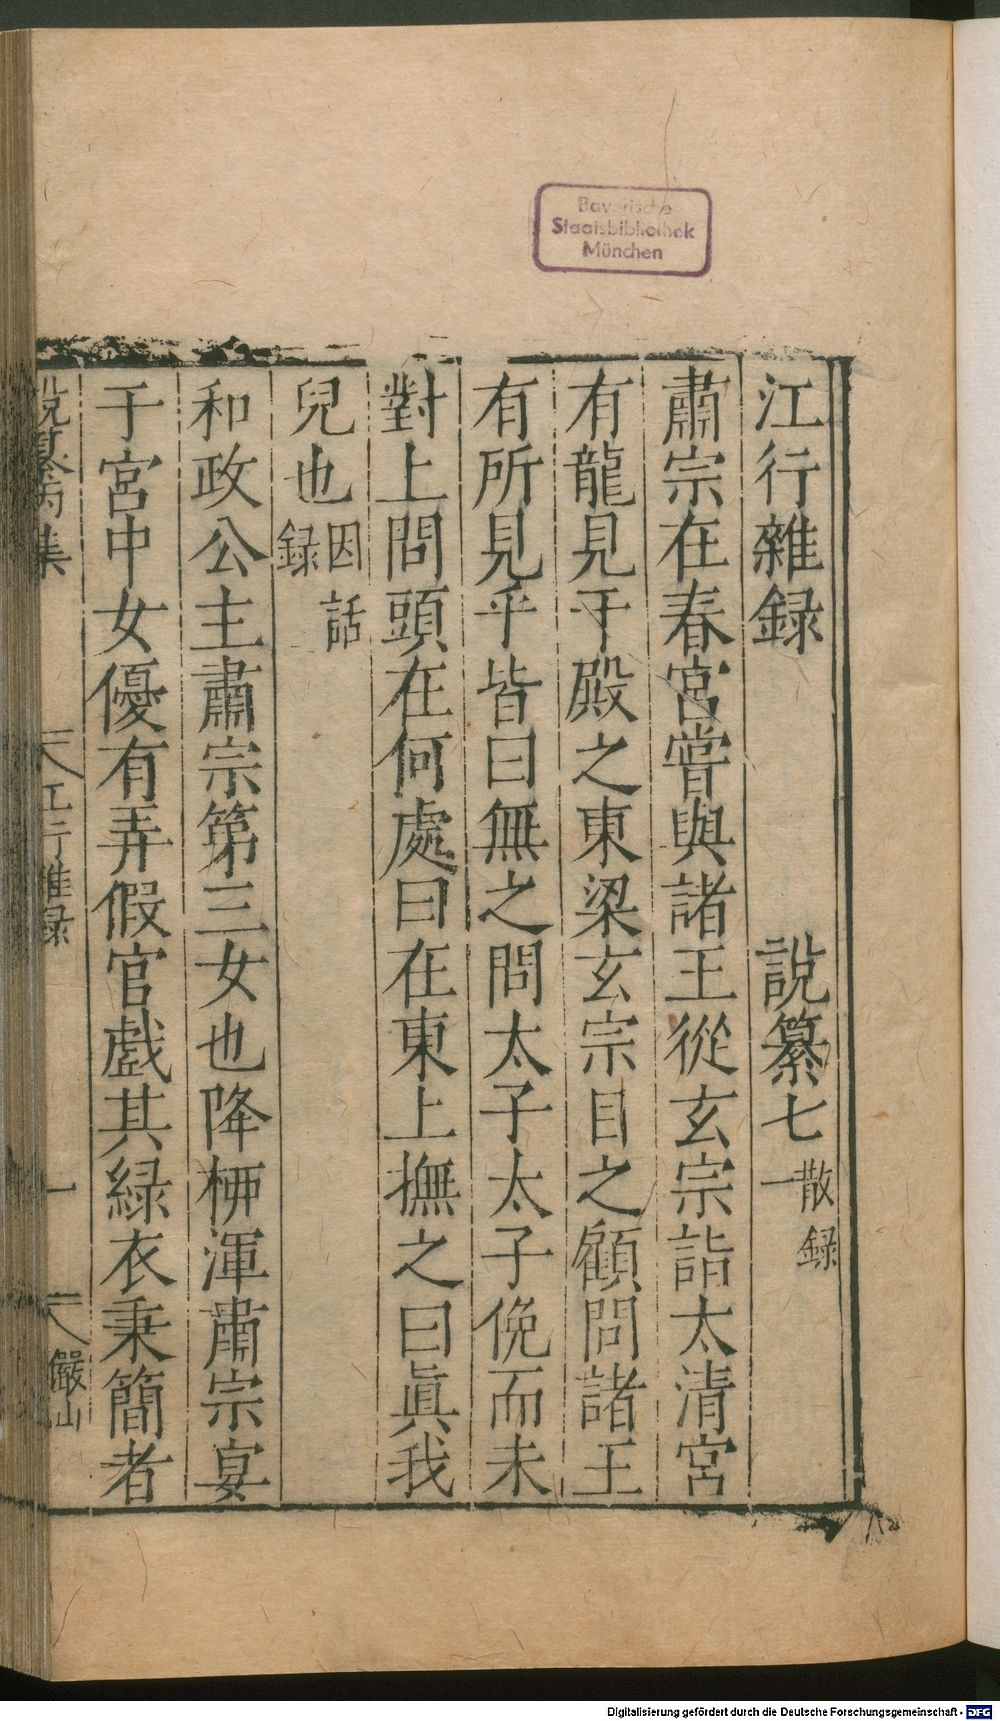 Bayerische
Staatsbibliothek
München
江行雜録 說纂七 散録一
肅宗在春宮嘗與諸王從玄宗詣太清宮
有龍見于殿之東梁玄宗目之顧問諸王
有所見乎皆曰無之問太子太子俛而未
對上問頭在何處曰在東上撫之曰眞我
兒也 因話録
和政公主肅宗第三女也降栁渾肅宗宴
于宮中女優有弄假官戲其緑衣秉簡者
說纂丙集 江行雜録 一 儼山
Digitalisierung gefördert durch die Deutsche Forschungsgemeinschaft - DFG